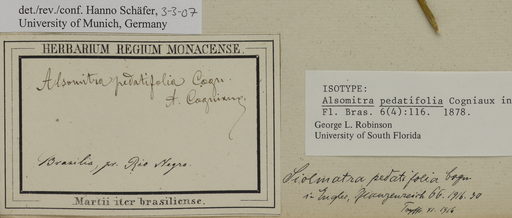 det./rev./conf. Hanno Schäfer, 3-3-07
University of Munich, Germany
HERBARIUM REGIUM MONACENSE.
Alsomitra pedatifolia Cogn.
A. Cogniaux
Brasilia, pr. Rio Negro.
Martii iter brasiliense.
ISOTYPE:
Alsomitra pedatifolia Cogniaux in
Fl. Bras. 6(4):116. 1878.
George L. Robinson
University of South Florida
Siolmatra pedatifolia Cogn
in Engler, Pflanzenreich 66. 1916. 30